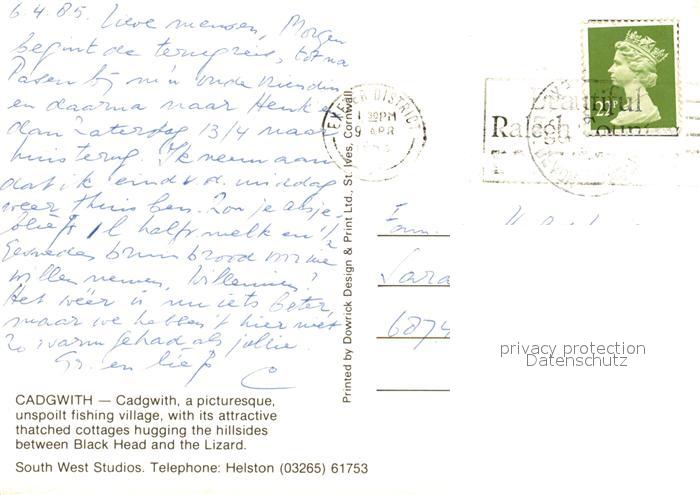 6.4.85. Lieve mensen, Morgen
begint de terugreis, tot na
Pasen bij m'n oude vriendin
en daarna naar Henk en
dan Zaterdag 13/4 naar
huis terug. Ik neem aan
dat ik eind v.d. middag
weer thuis ben. Zou je alsje-
blieft 1 l halfv. melk en 1/2
Gesneden bruin brood voor me
willen nemen, Willemien?
Het weer is nu iets beter,
maar we hebben 't hier niet
zo warm gehad als jullie.
Gr. en liefs
C
CADGWITH — Cadgwith, a picturesque,
unspoilt fishing village, with its attractive
thatched cottages hugging the hillsides
between Black Head and the Lizard.
South West Studios. Telephone: Helston (03265) 61753
Printed by Dowrick Design & Print Ltd., St. Ives, Cornwall.
EXETER DISTRICT
1 30PM
9 APR
Beautiful
Ralegh Count
22P
Fam.
Sara
6874
privacy protection
Datenschutz